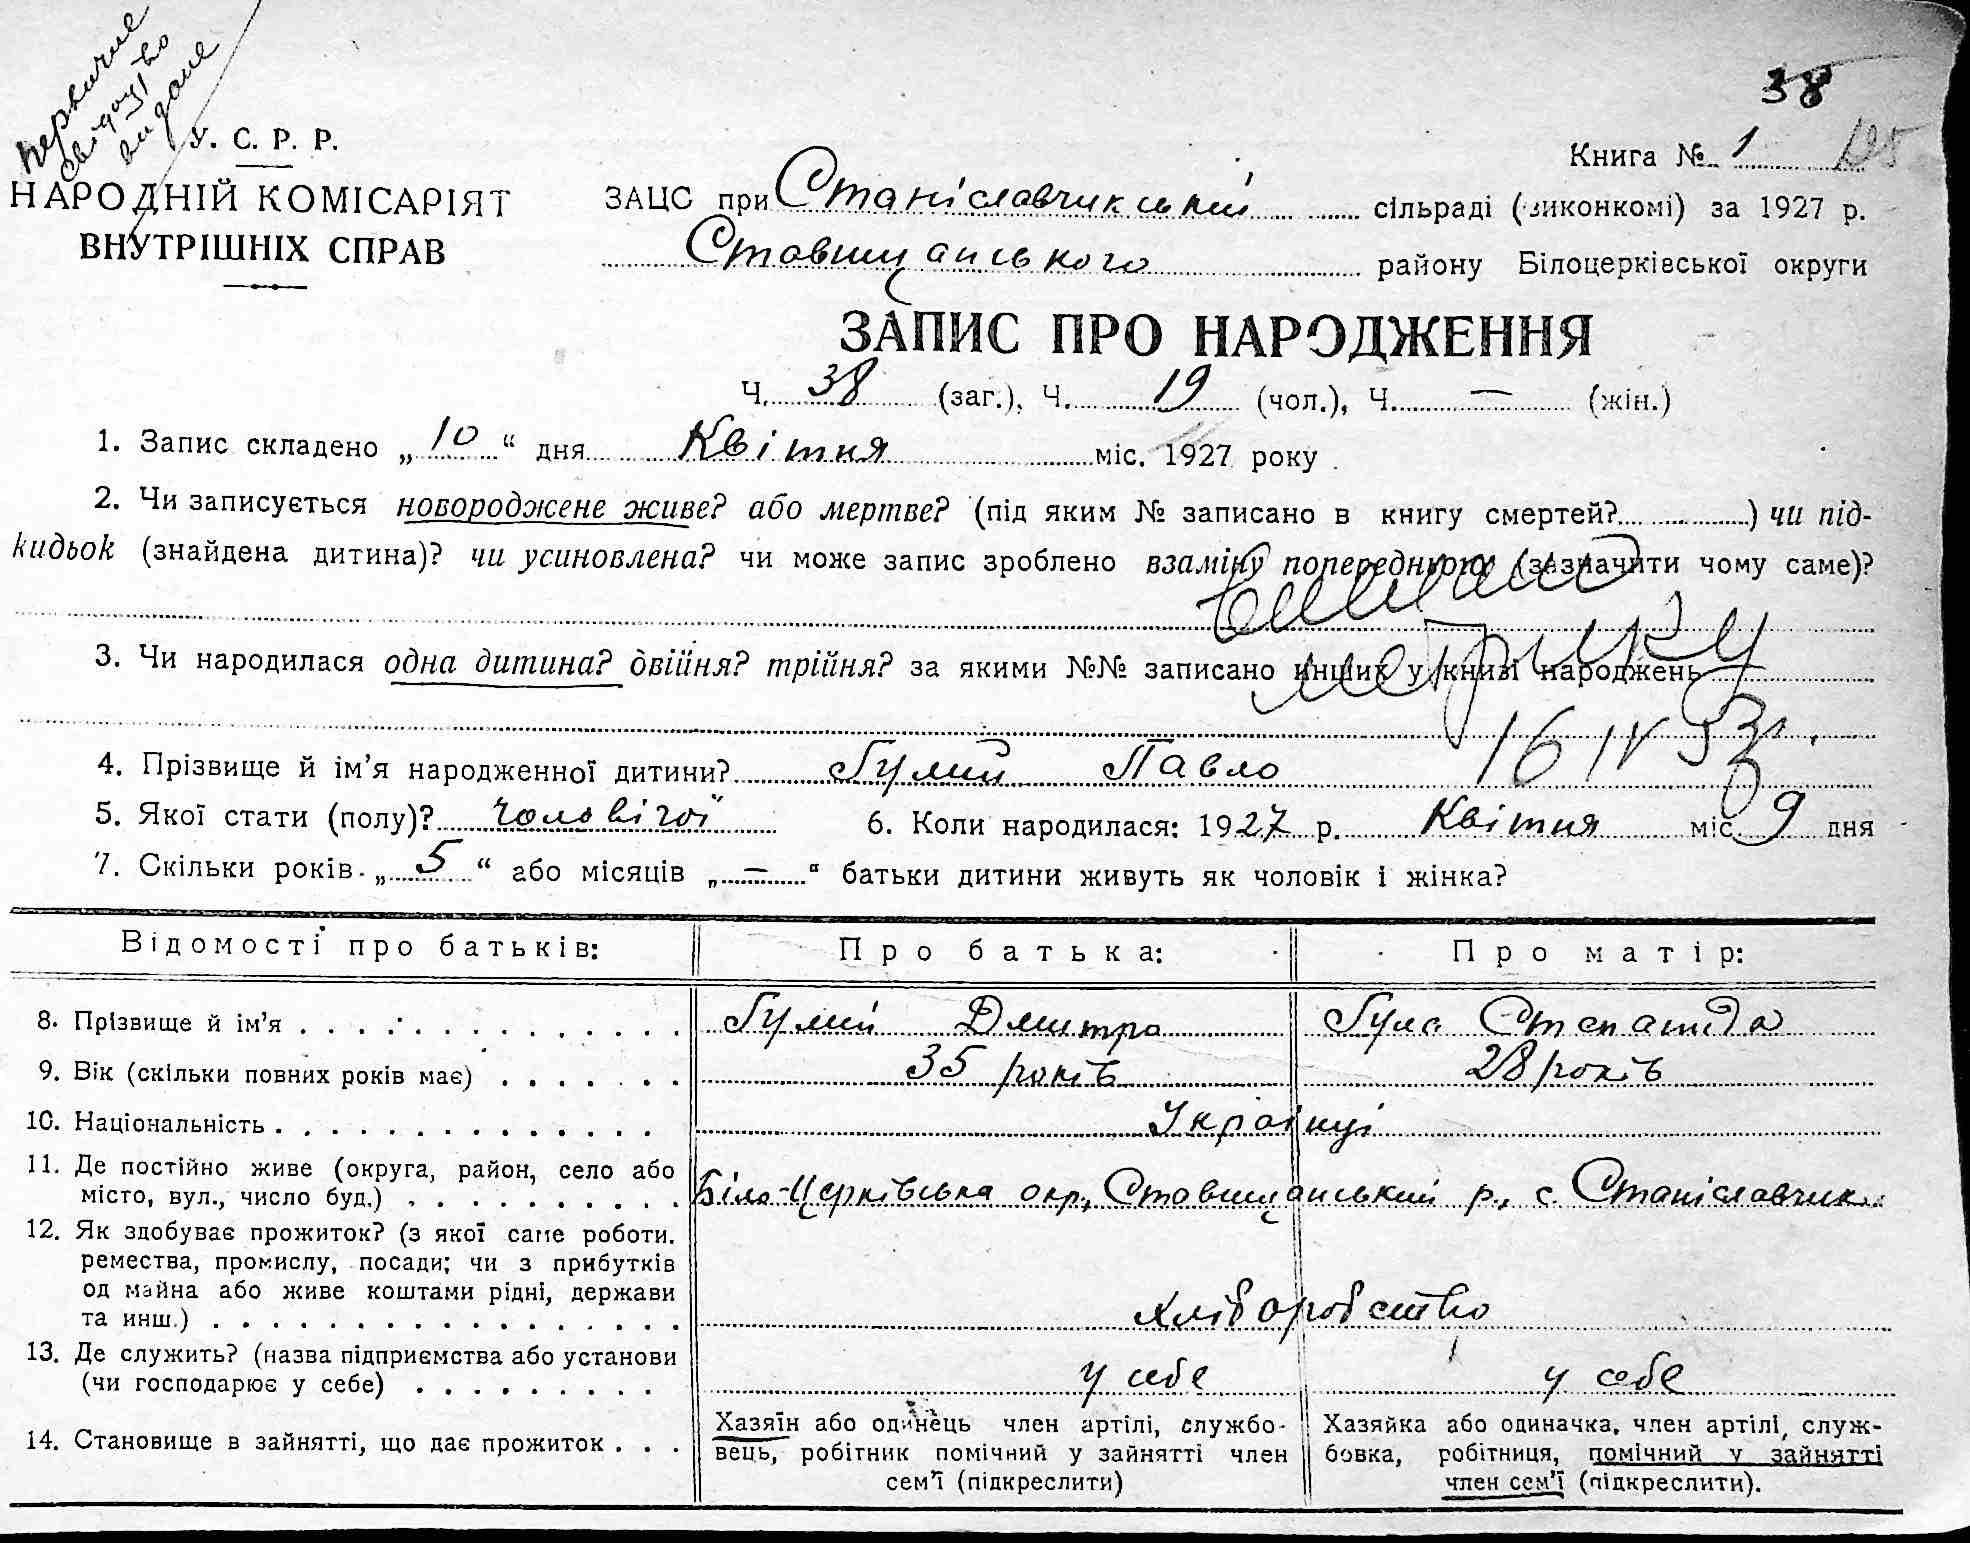 первичне
свідоцтво
видане
38
У. С. Р. Р.
Книга № 1
НАРОДНІЙ КОМІСАРІЯТ
ВНУТРІШНІХ СПРАВ
ЗАЦС при Станіславчикській сільраді (виконкомі) за 1927 р.
Ставищанського району Білоцерківської округи
ЗАПИС ПРО НАРОДЖЕННЯ
Ч. 38 (заг.), Ч. 19 (чол.), Ч. — (жін.)
1. Запис складено „10“ дня Квітня міс. 1927 року
2. Чи записується новороджене живе? або мертве? (під яким № записано в книгу смертей?) чи під-
кидьок (знайдена дитина)? чи усиновлена? чи може запис зроблено взаміну попередньою (зазначити чому саме)?
3. Чи народилася одна дитина? двійня? трійня? за якими №№ записано инших у книзі народжень
метрику
16 IV 53г.
4. Прізвище й ім’я народженної дитини? Гулий Павло
5. Якої стати (полу)? чоловічої 6. Коли народилася: 1927 р. Квітня міс. 9 дня
7. Скільки років „5“ або місяців „—“ батьки дитини живуть як чоловік і жінка?
Відомості про батьків: Про батька: Про матір:
8. Прізвище й ім’я Гулий Дмитро Гула Степанида
9. Вік (скільки повних років має) 35 років 28 років
10. Національність Українці
11. Де постійно живе (округа, район, село або
місто, вул., число буд.) Біло-Церківська окр., Ставищанський р., с. Станіславчик
12. Як здобуває прожиток? (з якої саме роботи,
ремества, промислу, посади; чи з прибутків
од майна або живе коштами рідні, держави
та инш.) хліборобство
13. Де служить? (назва підприємства або установи
(чи господарює у себе) у себе у себе
14. Становище в зайнятті, що дає прожиток
Хазяїн або одинець член артілі, службо-
вець, робітник помічний у зайнятті член
сем’ї (підкреслити)
Хазяйка або одиначка, член артілі, служ-
бовка, робітниця, помічний у зайнятті
член сем’ї (підкреслити).